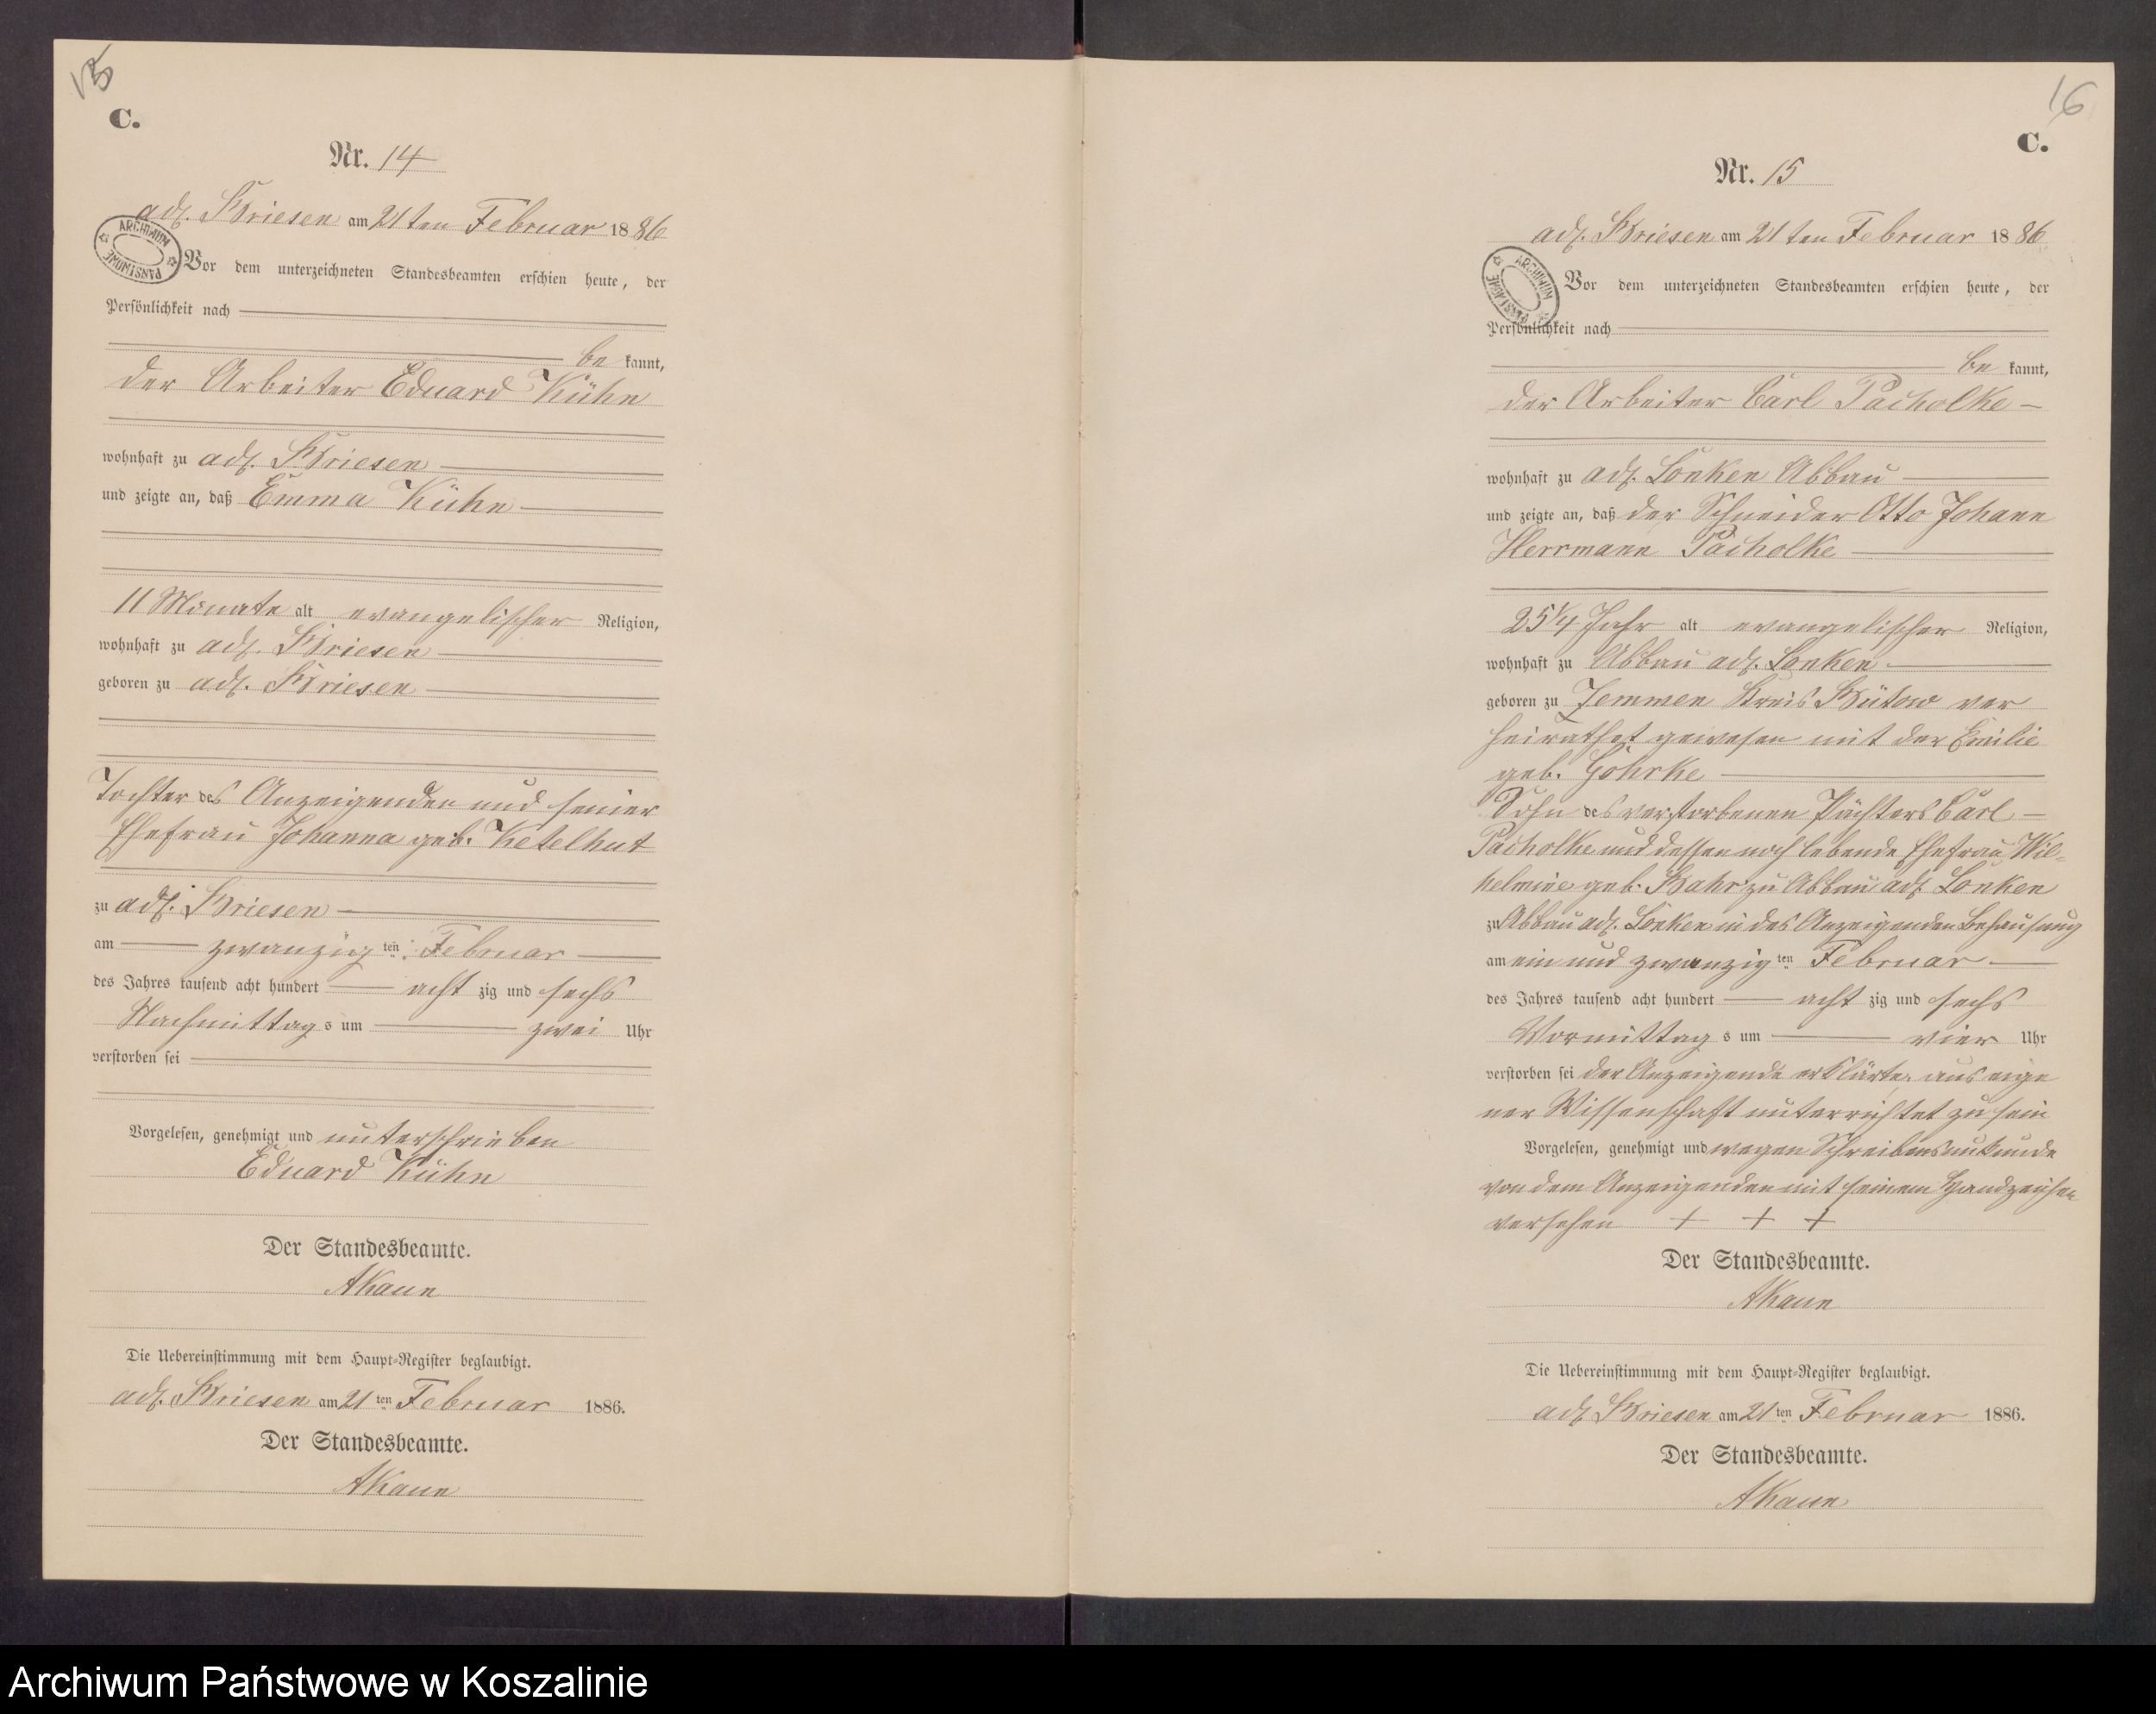 15
C.
Nr. 14
adl. Briesen am 21ten Februar 1886
ARCHIWUM PAŃSTWOWE
Vor dem unterzeichneten Standesbeamten erschien heute, der
Persönlichkeit nach
be kannt,
der Arbeiter Eduard Kühn
wohnhaft zu adl. Briesen
und zeigte an, daß Emma Kühn
11 Monate alt evangelischer Religion,
wohnhaft zu adl. Briesen
geboren zu adl. Briesen
Tochter des Anzeigenden und seiner
Ehefrau Johanna geb. Ketelhut
zu adl. Briesen
am zwanzig ten Februar
des Jahres tausend acht hundert acht zig und sechs
Nachmittag s um zwei Uhr
verstorben sei
Vorgelesen, genehmigt und unterschrieben
Eduard Kühn
Der Standesbeamte.
AKaun
Die Uebereinstimmung mit dem Haupt-Register beglaubigt.
adl. Briesen am 21 ten Februar 1886.
Der Standesbeamte.
AKaun
16
C.
Nr. 15
adl. Briesen am 21ten Februar 1886
ARCHIWUM PAŃSTWOWE
Vor dem unterzeichneten Standesbeamten erschien heute, der
Persönlichkeit nach
be kannt,
der Arbeiter Carl Pacholke
wohnhaft zu adl. Lonken Abbau
und zeigte an, daß der Schneider Otto Johann
Herrmann Pacholke
25 1/4 Jahr alt evangelischer Religion,
wohnhaft zu Abbau adl. Lonken
geboren zu Zemmen Kreis Bütow ver
heirathet gewesen mit der Emilie
geb. Gohrke
Sohn des verstorbenen Pächters Carl
Pacholke und dessen noch lebende Ehefrau Wil-
helmine geb. Bahr zu Abbau adl. Lonken
zu Abbau adl. Lonken in des Anzeigenden Behausung
am ein und zwanzig ten Februar
des Jahres tausend acht hundert acht zig und sechs
Vormittag s um vier Uhr
verstorben sei der Anzeigende erklärte, aus eige
ner Wissenschaft unterrichtet zu sein
Vorgelesen, genehmigt und wegen Schreibensunkunde
von dem Anzeigenden mit seinem Handzeichen
versehen + + +
Der Standesbeamte.
AKaun
Die Uebereinstimmung mit dem Haupt-Register beglaubigt.
adl. Briesen am 21 ten Februar 1886.
Der Standesbeamte.
AKaun
Archiwum Państwowe w Koszalinie